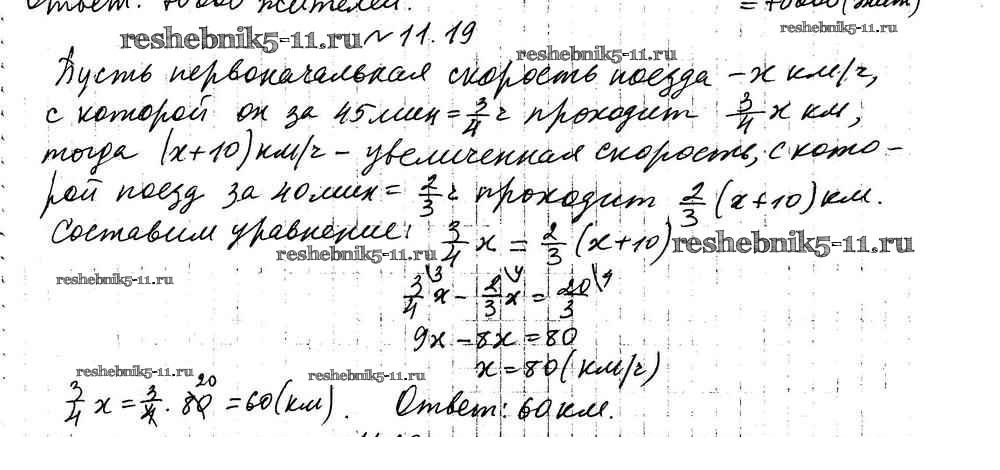 Ответ: 70000 жителей. = 70000 (жит)
reshebnik5-11.ru № 11.19 reshebnik5-11.ru
reshebnik5-11.ru
Пусть первоначальная скорость поезда – x км/ч,
с которой он за 45 мин = 3/4 ч проходит 3/4 x км,
тогда (x+10) км/ч – увеличенная скорость, с кото-
рой поезд за 40 мин = 2/3 ч проходит 2/3 (x+10) км.
Составим уравнение: 3/4 x = 2/3 (x+10) reshebnik5-11.ru
reshebnik5-11.ru
reshebnik5-11.ru
3/4\3 x – 2/3\4 x = 20/3\4
9x – 8x = 80
x = 80 (км/ч)
reshebnik5-11.ru reshebnik5-11.ru
3/4 x = 3/4 · 80 20 = 60 (км). Ответ: 60 км.